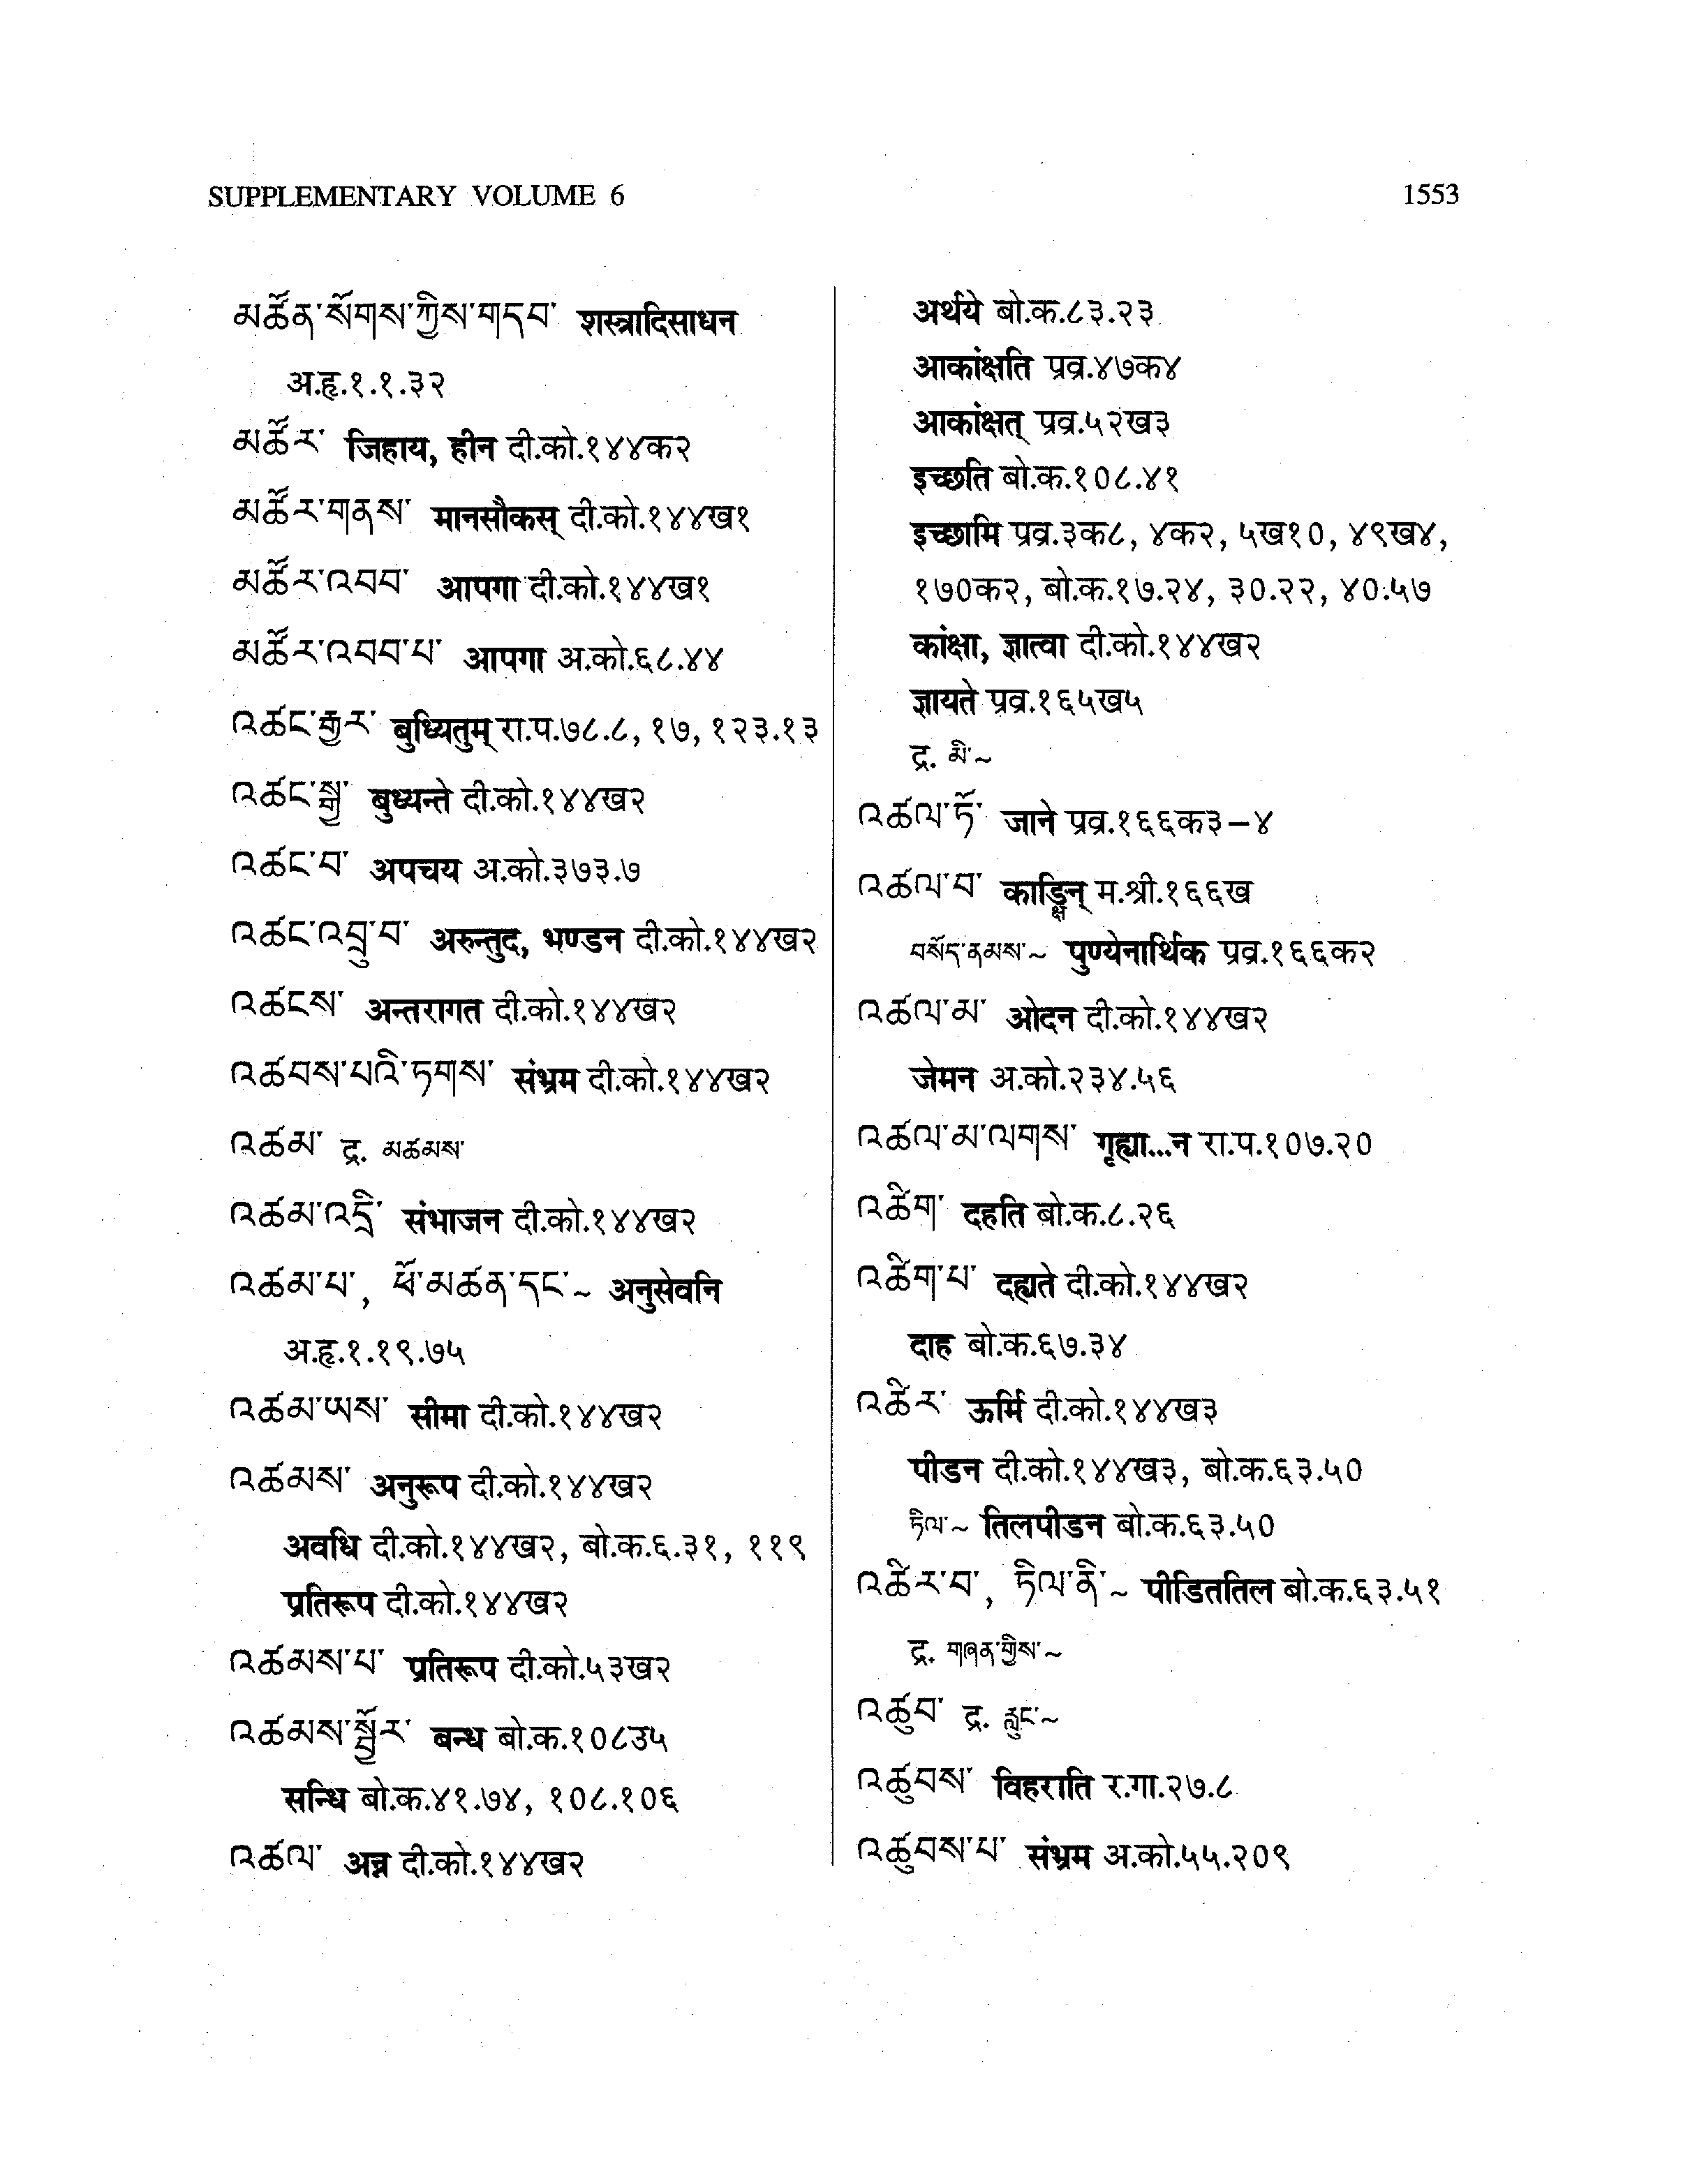 SUPPLEMENTARY VOLUME 6 1553
མཚོན་སོགས་ཀྱིས་གདབ་ शस्त्रादिसाधन
अ.हृ.१.१.३२
མཚོར་ जिहाय, हीन दी.को.१४४क२
མཚོར་གནས་ मानसौकस् दी.को.१४४ख१
མཚོར་འབབ་ आपगा दी.को.१४४ख१
མཚོར་འབབ་པ་ आपगा अ.को.६८.४४
འཚང་རྒྱར་ बुध्यितुम् रा.प.७८.८, १७, १२३.१३
འཚང་རྒྱ་ बुध्यन्ते दी.को.१४४ख२
འཚང་བ་ अपचय अ.को.३७३.७
འཚང་འབྲུ་བ་ अरुन्तुद, भण्डन दी.को.१४४ख२
འཚངས་ अन्तरागत दी.को.१४४ख२
འཚབས་པའི་ཏགས་ संभ्रम दी.को.१४४ख२
འཚམ་ द्र. མཚམས་
འཚམ་འདྲི་ संभाजन दी.को.१४४ख२
འཚམ་པ་, ཕོ་མཚན་དང་~ अनुसेवनि
अ.हृ.१.१९.७५
འཚམ་ཡས་ सीमा दी.को.१४४ख२
འཚམས་ अनुरूप दी.को.१४४ख२
अवधि दी.को.१४४ख२, बो.क.६.३१, ११९
प्रतिरूप दी.को.१४४ख२
འཚམས་པ་ प्रतिरूप दी.को.५३ख२
འཚམས་སྦྱོར་ बन्ध बो.क.१०८३५
सन्धि बो.क.४१.७४, १०८.१०६
འཚལ་ अन्न दी.को.१४४ख२
अर्थये बो.क.८३.२३
आकांक्षति प्रव्र.४७क४
आकांक्षत् प्रव्र.५२ख३
इच्छति बो.क.१०८.४१
इच्छामि प्रव्र.३क८, ४क२, ५ख१०, ४९ख४,
१७०क२, बो.क.१७.२४, ३०.२२, ४०.५७
कांक्षा, ज्ञात्वा दी.को.१४४ख२
ज्ञायते प्रव्र.१६५ख५
द्र. མི་~
འཚལ་ཏོ་ जाने प्रव्र.१६६क३-४
འཚལ་བ་ काङ्क्षिन् म.श्री.१६६ख
བསོད་ནམས་~ पुण्येनार्थिक प्रव्र.१६६क२
འཚལ་མ་ ओदन दी.को.१४४ख२
जेमन अ.को.२३४.५६
འཚལ་མ་ལགས་ गृह्या...न रा.प.१०७.२०
འཚིག་ दहति बो.क.८.२६
འཚིག་པ་ दह्यते दी.को.१४४ख२
दाह बो.क.६७.३४
འཚིར་ ऊर्मि दी.को.१४४ख३
पीडन दी.को.१४४ख३, बो.क.६३.५०
ཏིལ་~ तिलपीडन बो.क.६३.५०
འཚིར་བ་, ཏིལ་ནི་~ पीडिततिल बो.क.६३.५१
द्र. གཞན་གྱིས་~
འཚུབ་ द्र. རླུང་~
འཚུབས་ विहराति र.गा.२७.८
འཚུབས་པ་ संभ्रम अ.को.५५.२०९